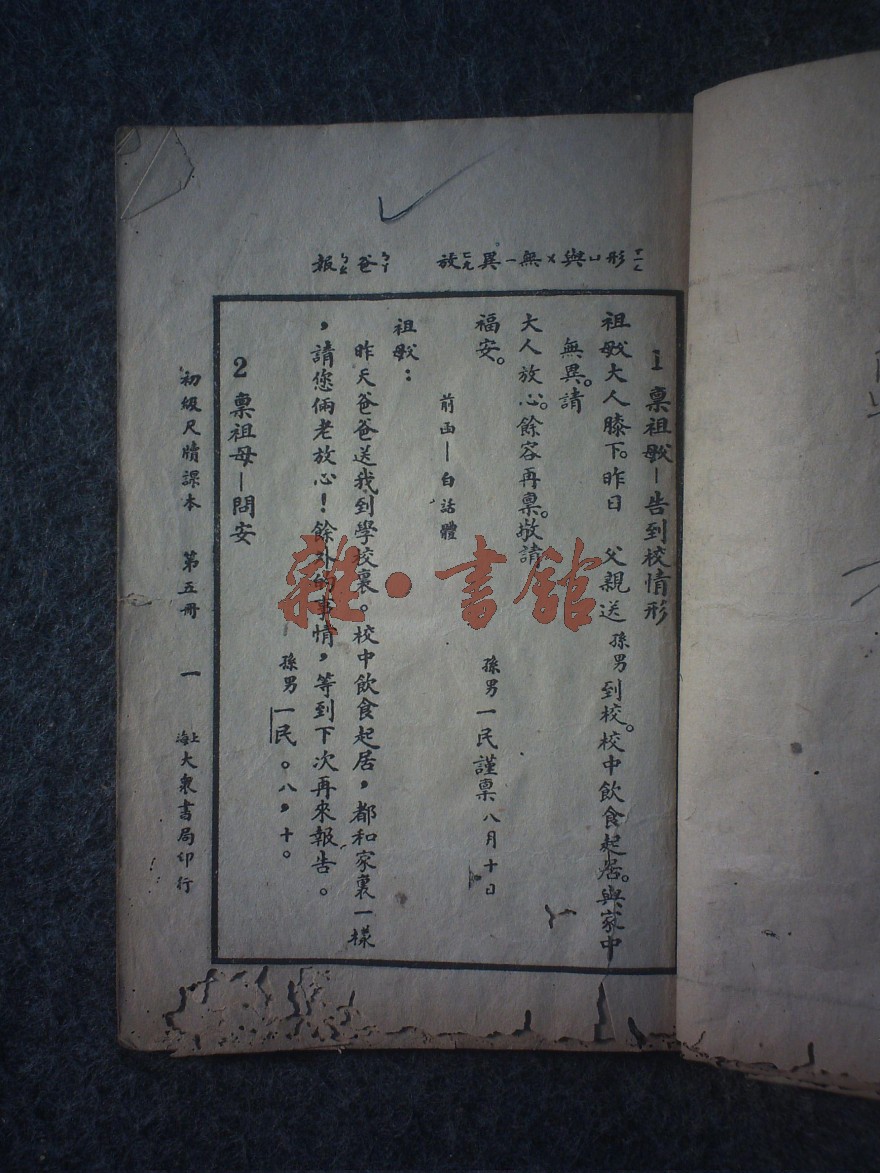 形ㄒㄧㄥ與ㄩ無ㄨ異ㄧ放ㄈㄤ 爸ㄅㄚ報ㄅㄠ
1 稟祖父母—告到校情形
祖父母大人膝下。昨日 父親送孫男到校。校中飲食起居。與家中
無異。請
大人放心。餘容再稟。敬請
福安。 孫男一民謹稟 八月十日
前函—白話體
祖父母：
昨天爸爸送我到學校裏。校中飲食起居，都和家裏一樣
，請您倆老放心！餘外的事情，等到下次再來報告。
孫男一民。八，十。
2 稟祖母—問安
初級尺牘課本 第五冊 一 上海大衆書局印行
雜·書館